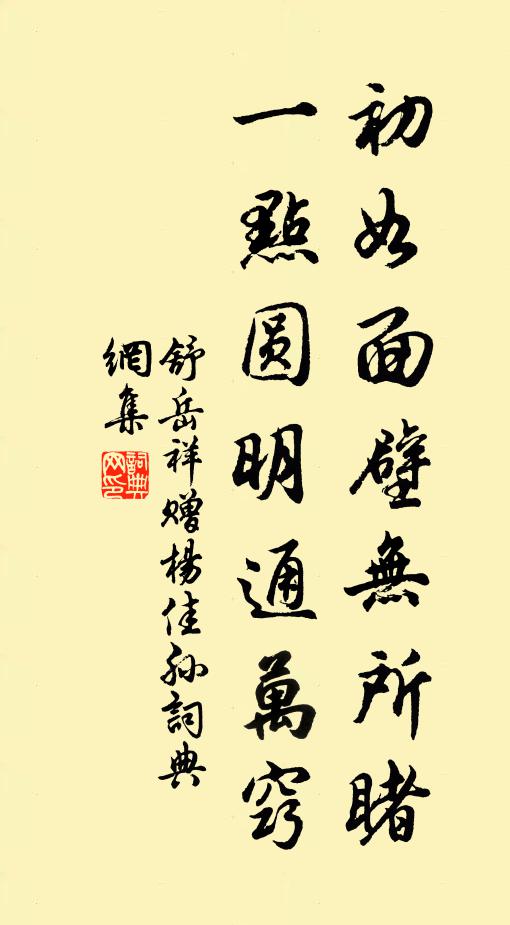 初如面壁無所睹
一點圆明通萬竅
舒岳祥赠楊佳孙詞典
網集
詞典网印